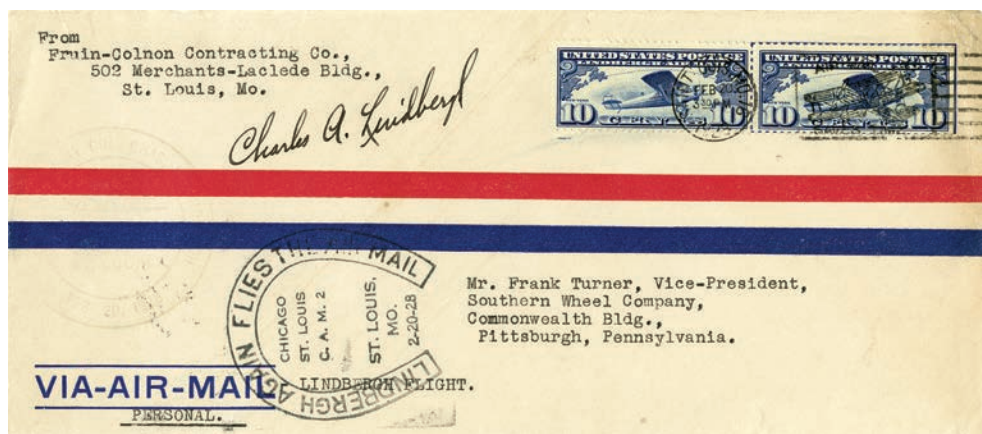 From
Fruin-Colnon Contracting Co.,
502 Merchants-Laclede Bldg.,
St. Louis, Mo.
Charles A. Lindbergh
UNITED STATES POSTAGE
LINDBERGH AIR MAIL
10 CENTS 10
UNITED STATES POSTAGE
10 10
FEB 20
3 30 PM
LINDBERGH AGAIN FLIES THE AIR MAIL
CHICAGO
ST. LOUIS
C. A. M. 2
ST. LOUIS,
MO.
2-20-28
Mr. Frank Turner, Vice-President,
Southern Wheel Company,
Commonwealth Bldg.,
Pittsburgh, Pennsylvania.
VIA-AIR-MAIL - LINDBERGH FLIGHT.
PERSONAL.